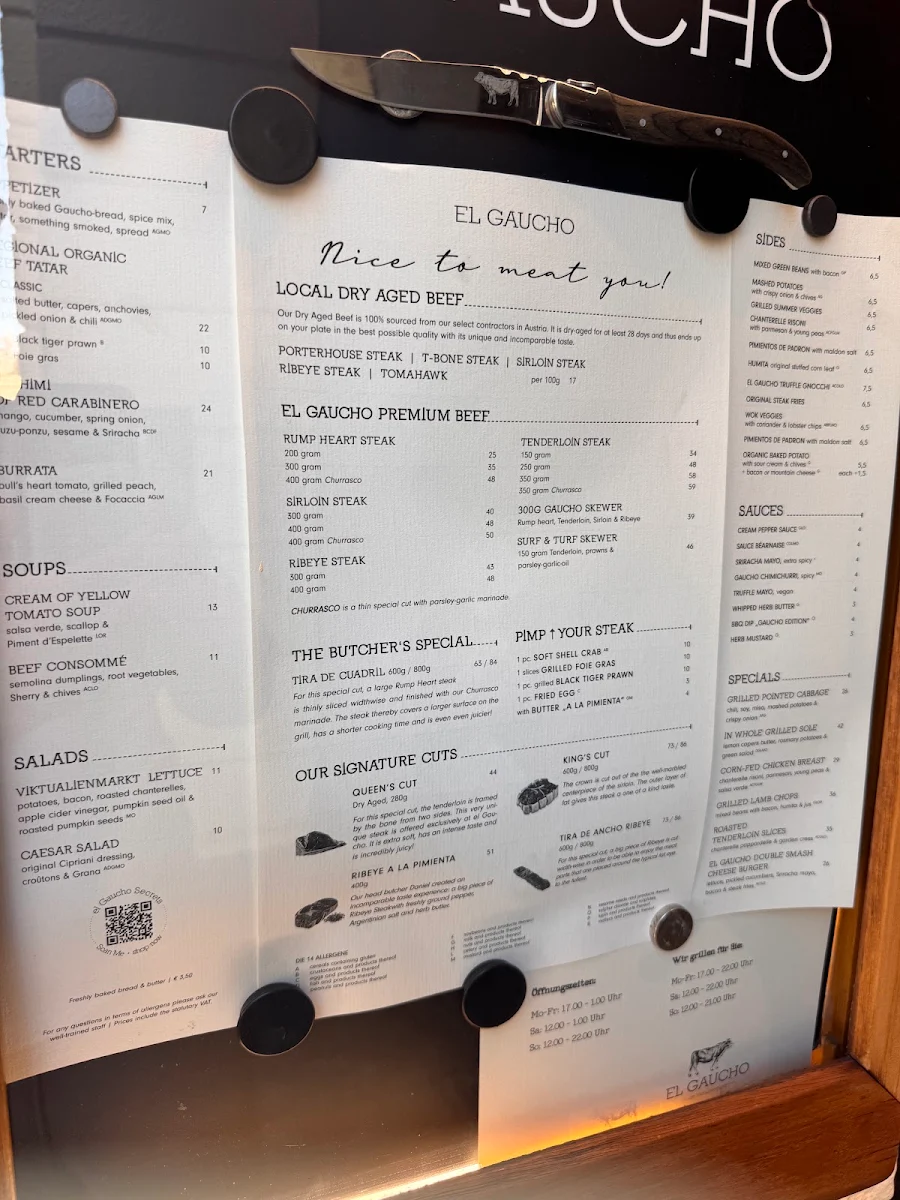 UCHO
ARTERS
ETİZER 7
ly baked Gaucho-bread, spice mix,
something smoked, spread AGMO
GİONAL ORGANİC
EF TATAR
ASSIC
ted butter, capers, anchovies,
kled onion & chili ADGMO 22
lack tiger prawn B 10
oie gras 10
HİMİ
OF RED CARABİNERO 24
mango, cucumber, spring onion,
uzu-ponzu, sesame & Sriracha BCDF
BURRATA 21
bull's heart tomato, grilled peach,
basil cream cheese & Focaccia AGLM
SOUPS
CREAM OF YELLOW
TOMATO SOUP 13
salsa verde, scallop &
Piment d'Espelette LOR
BEEF CONSOMMÉ 11
semolina dumplings, root vegetables,
Sherry & chives ACLO
SALADS
VİKTUALİENMARKT LETTUCE 11
potatoes, bacon, roasted chanterelles,
apple cider vinegar, pumpkin seed oil &
roasted pumpkin seeds MO
CAESAR SALAD 10
original Cipriani dressing,
croûtons & Grana ADGMO
el Gaucho Secrets
Scan Me • stay now
Freshly baked bread & butter | € 3,50
For any questions in terms of allergens please ask our
well-trained staff | Prices include the statutory VAT.
EL GAUCHO
Nice to meat you!
LOCAL DRY AGED BEEF
Our Dry Aged Beef is 100% sourced from our select contractors in Austria. It is dry-aged for at least 28 days and thus ends up
on your plate in the best possible quality with its unique and incomparable taste.
PORTERHOUSE STEAK | T-BONE STEAK | SİRLOİN STEAK
RİBEYE STEAK | TOMAHAWK per 100g 17
EL GAUCHO PREMİUM BEEF
RUMP HEART STEAK
200 gram 25
300 gram 35
400 gram Churrasco 48
SİRLOİN STEAK
300 gram 40
400 gram 48
400 gram Churrasco 50
RİBEYE STEAK
300 gram 43
400 gram 48
TENDERLOİN STEAK
150 gram 34
250 gram 48
350 gram 58
350 gram Churrasco 59
300G GAUCHO SKEWER
Rump heart, Tenderloin, Sirloin & Ribeye 39
SURF & TURF SKEWER
150 gram Tenderloin, prawns & 46
parsley-garlic oil
CHURRASCO is a thin special cut with parsley-garlic marinade
THE BUTCHER'S SPECİAL
TİRA DE CUADRİL 600g / 800g 63 / 84
For this special cut, a large Rump Heart steak
is thinly sliced widthwise and finished with our Churrasco
marinade. The steak thereby covers a larger surface on the
grill, has a shorter cooking time and is even even juicier!
PİMP ↑ YOUR STEAK
1 pc. SOFT SHELL CRAB AB 10
1 slices GRILLED FOIE GRAS 10
1 pc. grilled BLACK TIGER PRAWN 10
1 pc. FRIED EGG C 3
with BUTTER „A LA PIMENTA" GM 4
OUR SİGNATURE CUTS
QUEEN'S CUT 44
Dry Aged, 280g
For this special cut, the tenderloin is framed
by the bone from two sides. This very uni-
que steak is offered exclusively at El Gau-
cho. It is extra soft, has an intense taste and
is incredibly juicy!
RIBEYE A LA PIMIENTA 51
400g
Our head butcher Daniel created an
incomparable taste experience: a big piece of
Ribeye Steakwith freshly ground pepper,
Argentinian salt and herb butter.
KING'S CUT 73 / 86
600g / 800g
The crown is cut out of the the well-marbled
centerpiece of the sirloin. The outer layer of
fat gives this steak a one of a kind taste.
TIRA DE ANCHO RIBEYE 73 / 86
600g / 800g
For this special cut, a big piece of Ribeye is cut
width wise in order to be able to enjoy the meat
parts that are placed around the typical fat eye
to the fullest.
DIE 14 ALLERGENE
cereals containing gluten
crustaceans and products thereof
eggs and products thereof
fish and products thereof
peanuts and products thereof
soybeans and products thereof
milk and products thereof
nuts and products thereof
celery and products thereof
mustard and products thereof
sesame seeds and products thereof
sulphur dioxide and sulphites
lupin and products thereof
molluscs and products thereof
SİDES
MIXED GREEN BEANS with bacon 6,5
MASHED POTATOES
with crispy onion & chives 6,5
GRILLED SUMMER VEGGIES 6,5
CHANTERELLE RISONI 6,5
with parmesan & young peas
PIMIENTOS DE PADRON with maldon salt 6,5
HUMITA original stuffed corn leaf G 6,5
EL GAUCHO TRUFFLE GNOCCHI 7,5
ORIGINAL STEAK FRIES 6,5
WOK VEGGIES
with coriander & lobster chips
PIMIENTOS DE PADRON with maldon salt 6,5
ORGANIC BAKED POTATO
with sour cream & chives G 5,5
+ bacon or mountain cheese G each +1,5
SAUCES
CREAM PEPPER SAUCE 4
SAUCE BÉARNAISE 4
SRIRACHA MAYO, extra spicy 4
GAUCHO CHIMICHURRI, spicy 4
TRUFFLE MAYO, vegan 4
WHIPPED HERB BUTTER G 3
BBQ DIP „GAUCHO EDITION" 4
HERB MUSTARD 3
SPECİALS
GRİLLED POİNTED CABBAGE 26
chili, soy, miso, mashed potatoes &
crispy onion
İN WHOLE GRİLLED SOLE 42
lemon capers butter, rosemary potatoes &
green salad
CORN-FED CHİCKEN BREAST 29
chanterelle risoni, parmesan, young peas &
salsa verde
GRİLLED LAMB CHOPS 36
mixed beans with bacon, humita & jus
ROASTED
TENDERLOİN SLICES 35
chanterelle pappardelle & garden cress
EL GAUCHO DOUBLE SMASH
CHEESE BURGER 26
lettuce, pickled cucumbers, Sriracha mayo,
bacon & steak fries
Öffnungszeiten:
Mo-Fr: 17.00 - 1.00 Uhr
Sa: 12.00 - 1.00 Uhr
So: 12.00 - 22.00 Uhr
Wir grillen für Sie:
Mo-Fr: 17.00 - 22.00 Uhr
Sa: 12.00 - 22.00 Uhr
So: 12.00 - 21.00 Uhr
EL GAUCHO